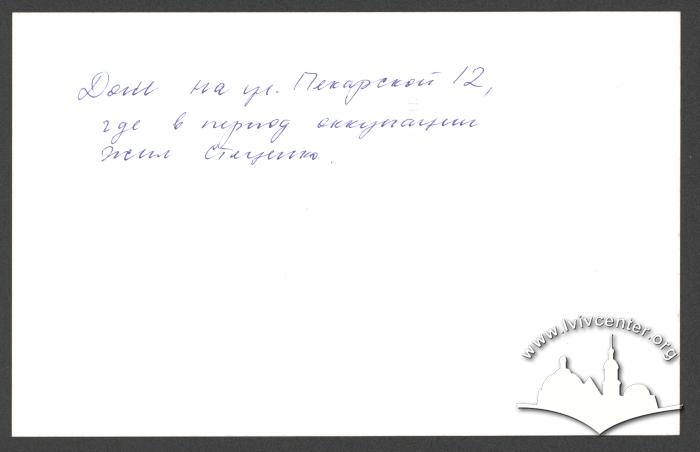 Дом на ул. Пекарской 12,
где в период оккупации
жил Стеценко.
www.lvivcenter.org